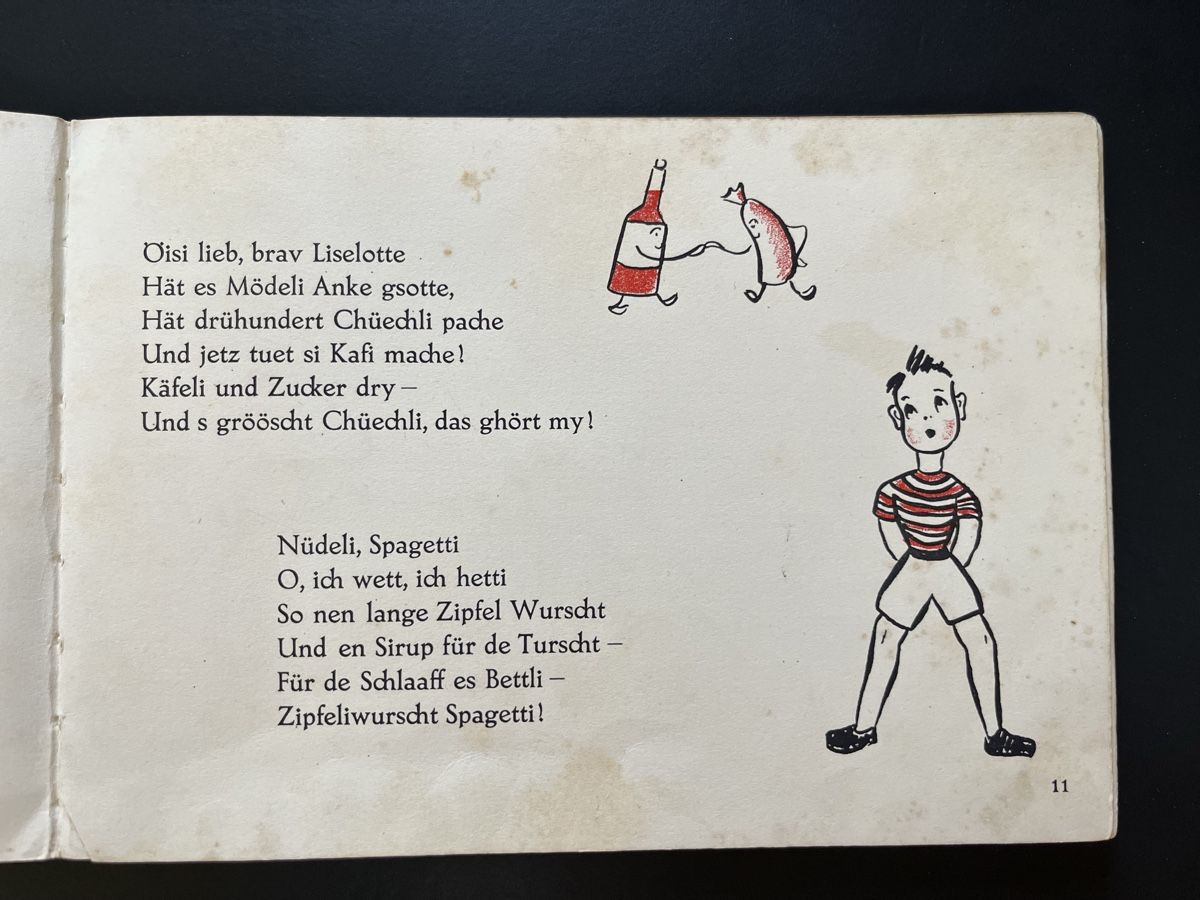 Öisi lieb, brav Liselotte
Hät es Mödeli Anke gsotte,
Hät drühundert Chüechli pache
Und jetz tuet si Kafi mache!
Käfeli und Zucker dry –
Und s grööscht Chüechli, das ghört my!
Nüdeli, Spagetti
O, ich wett, ich hetti
So nen lange Zipfel Wurscht
Und en Sirup für de Turscht –
Für de Schlaaff es Bettli –
Zipfeliwurscht Spagetti!
11